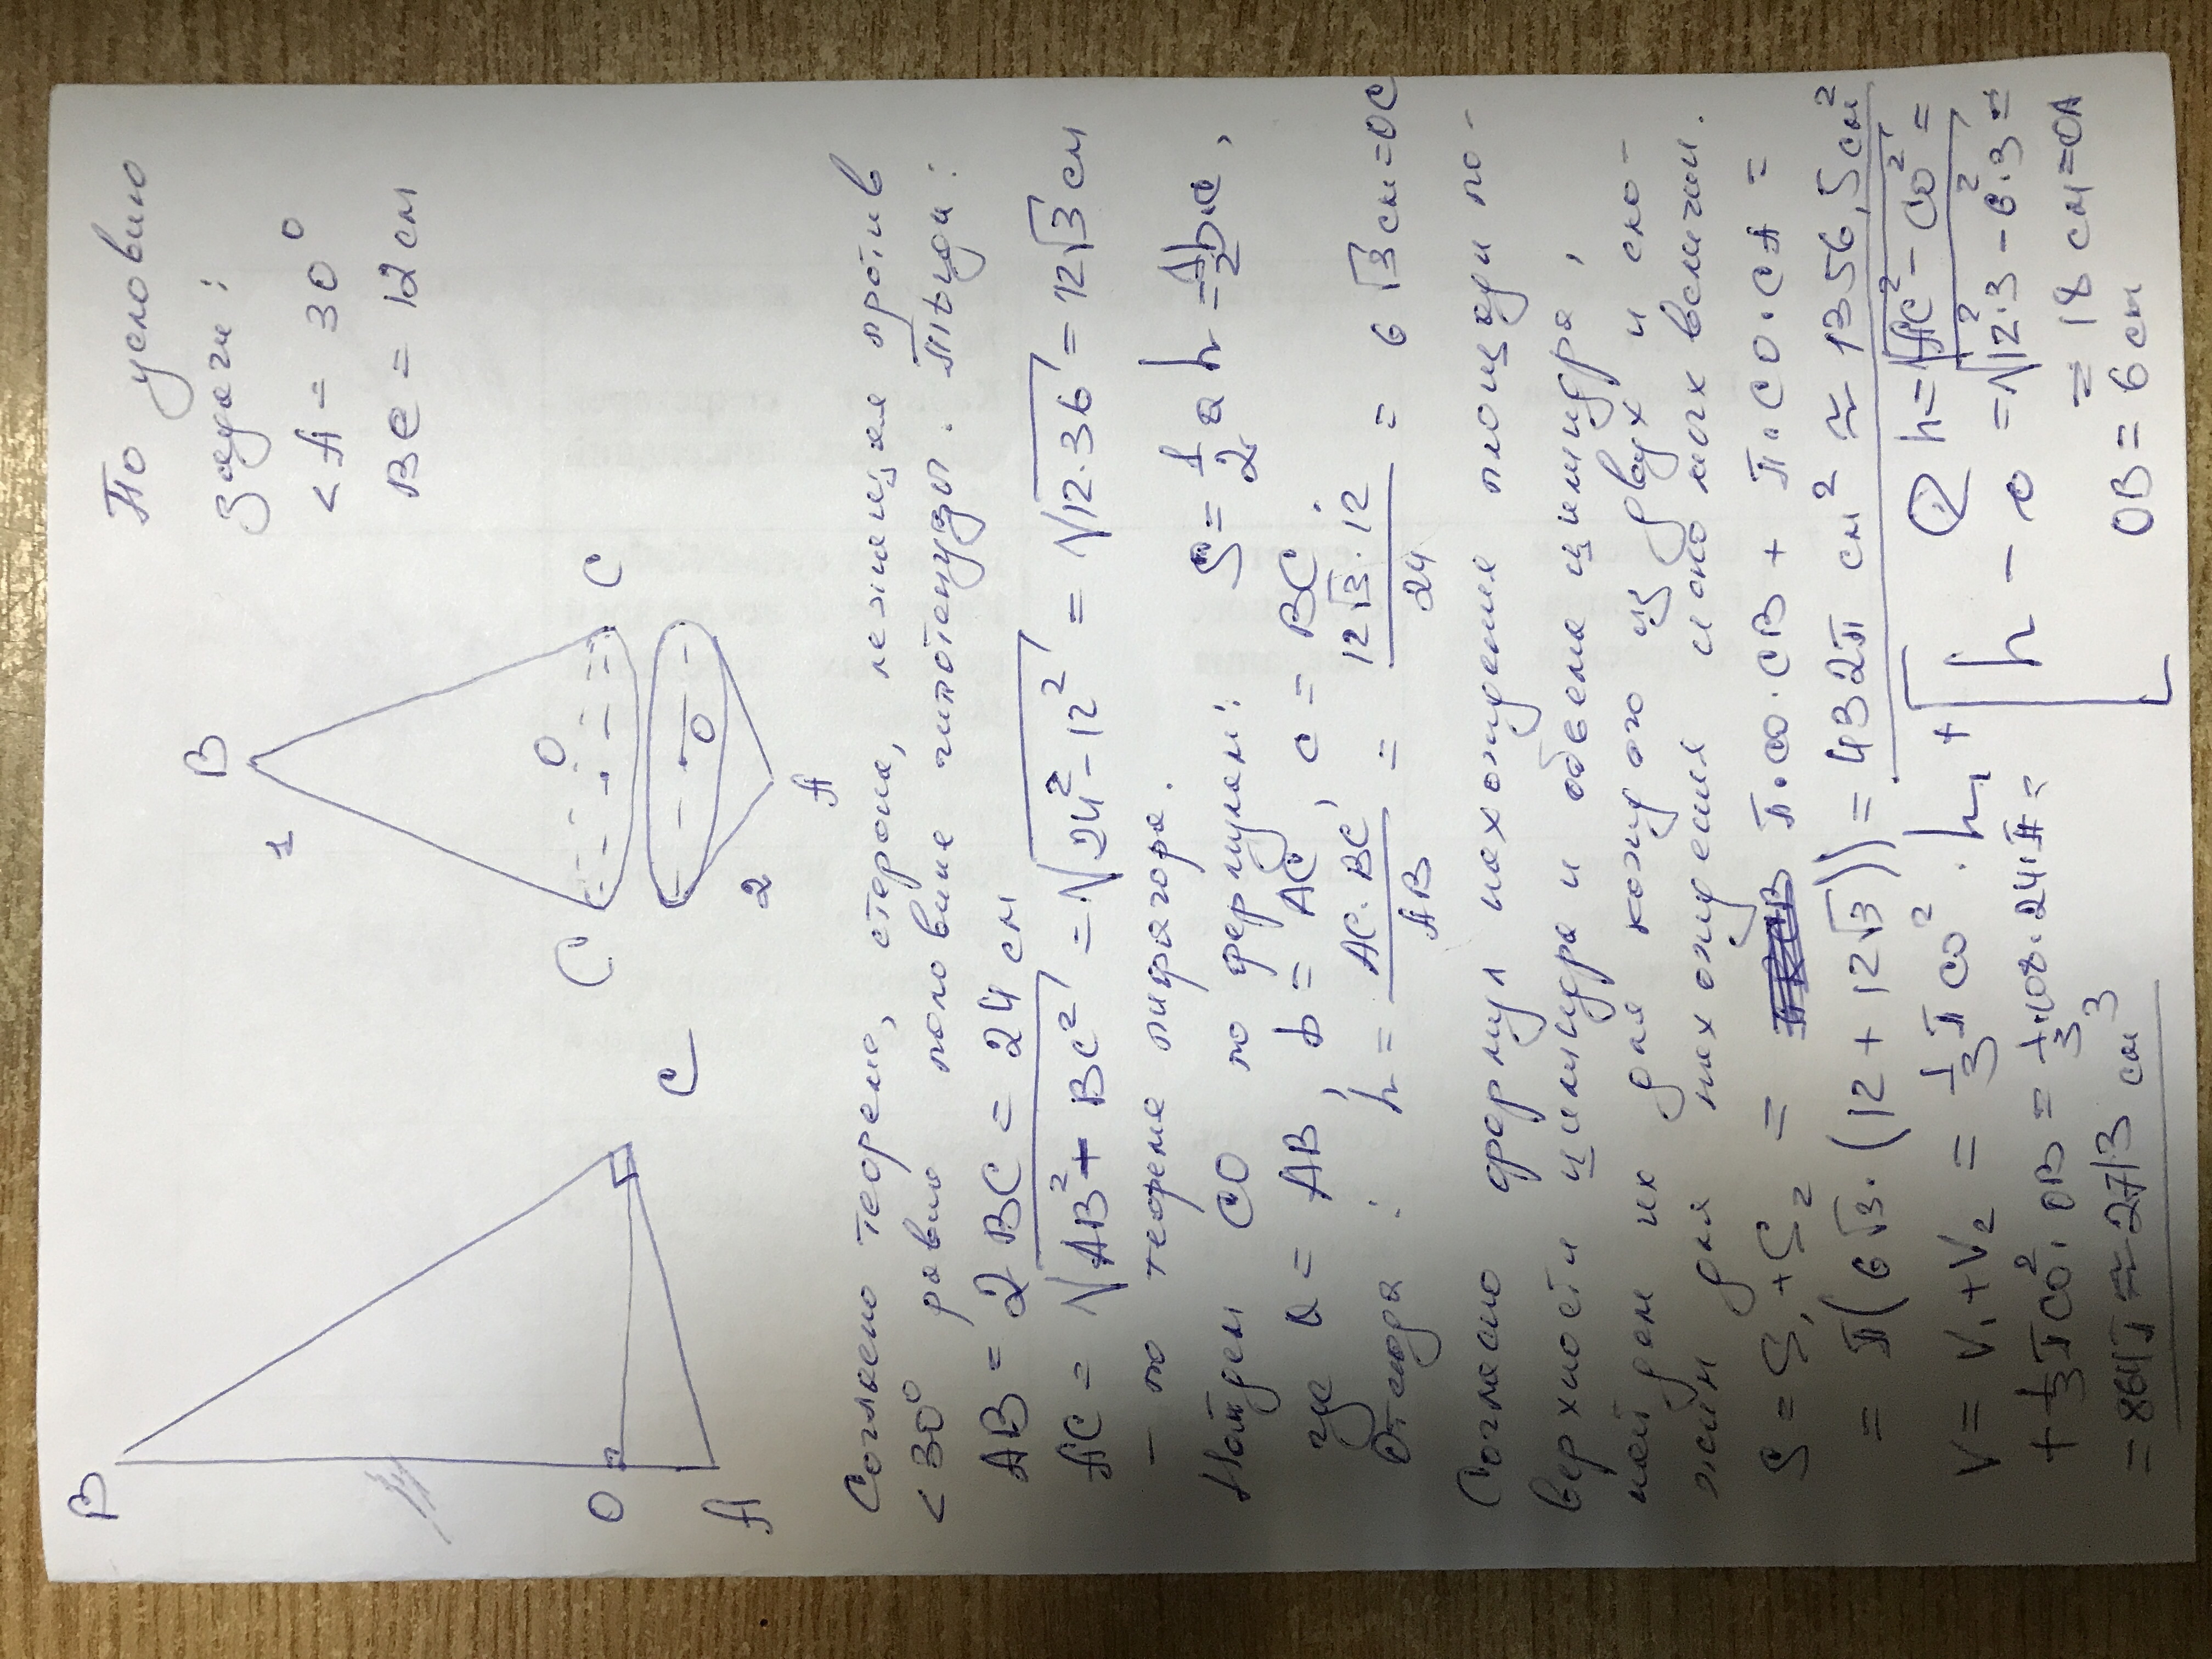 По условию
задачи:
<A = 30°
BC = 12 см
B
O
A
C
1
B
C
O
C
O
2
A
Согласно теореме, сторона, лежащая против
<30° равна половине гипотенузы. Тогда:
AB = 2 BC = 24 см
AC = √AB² + BC² = √24² - 12² = √12·36 = 12√3 см
- по теореме пифагора.
Найдем CO по формулам: S = 1/2 a h =
где a = AB, b = AC, c = BC.
Отсюда: h = AC·BC/AB = 12√3·12/24 = 6√3 см = OC
Согласно формул нахождения площади по-
верхности цилиндра и объема цилиндра,
найдем их для каждого из двух и сло-
жим для нахождения искомых величин.
S = S₁ + S₂ = π·CO·CB + π·CO·CA =
= π(6√3·(12 + 12√3)) = 432π см² ≈ 1356,5 см²
V = V₁ + V₂ = 1/3 π CO²·h₁ +
+ 1/3 π CO²·OB = 1/3·108·24π =
= 864π ≈ 2713 см³
h - ② h = √AC² - CO² =
= √12²·3 - 6²·3 =
= 18 см = OA
OB = 6 см